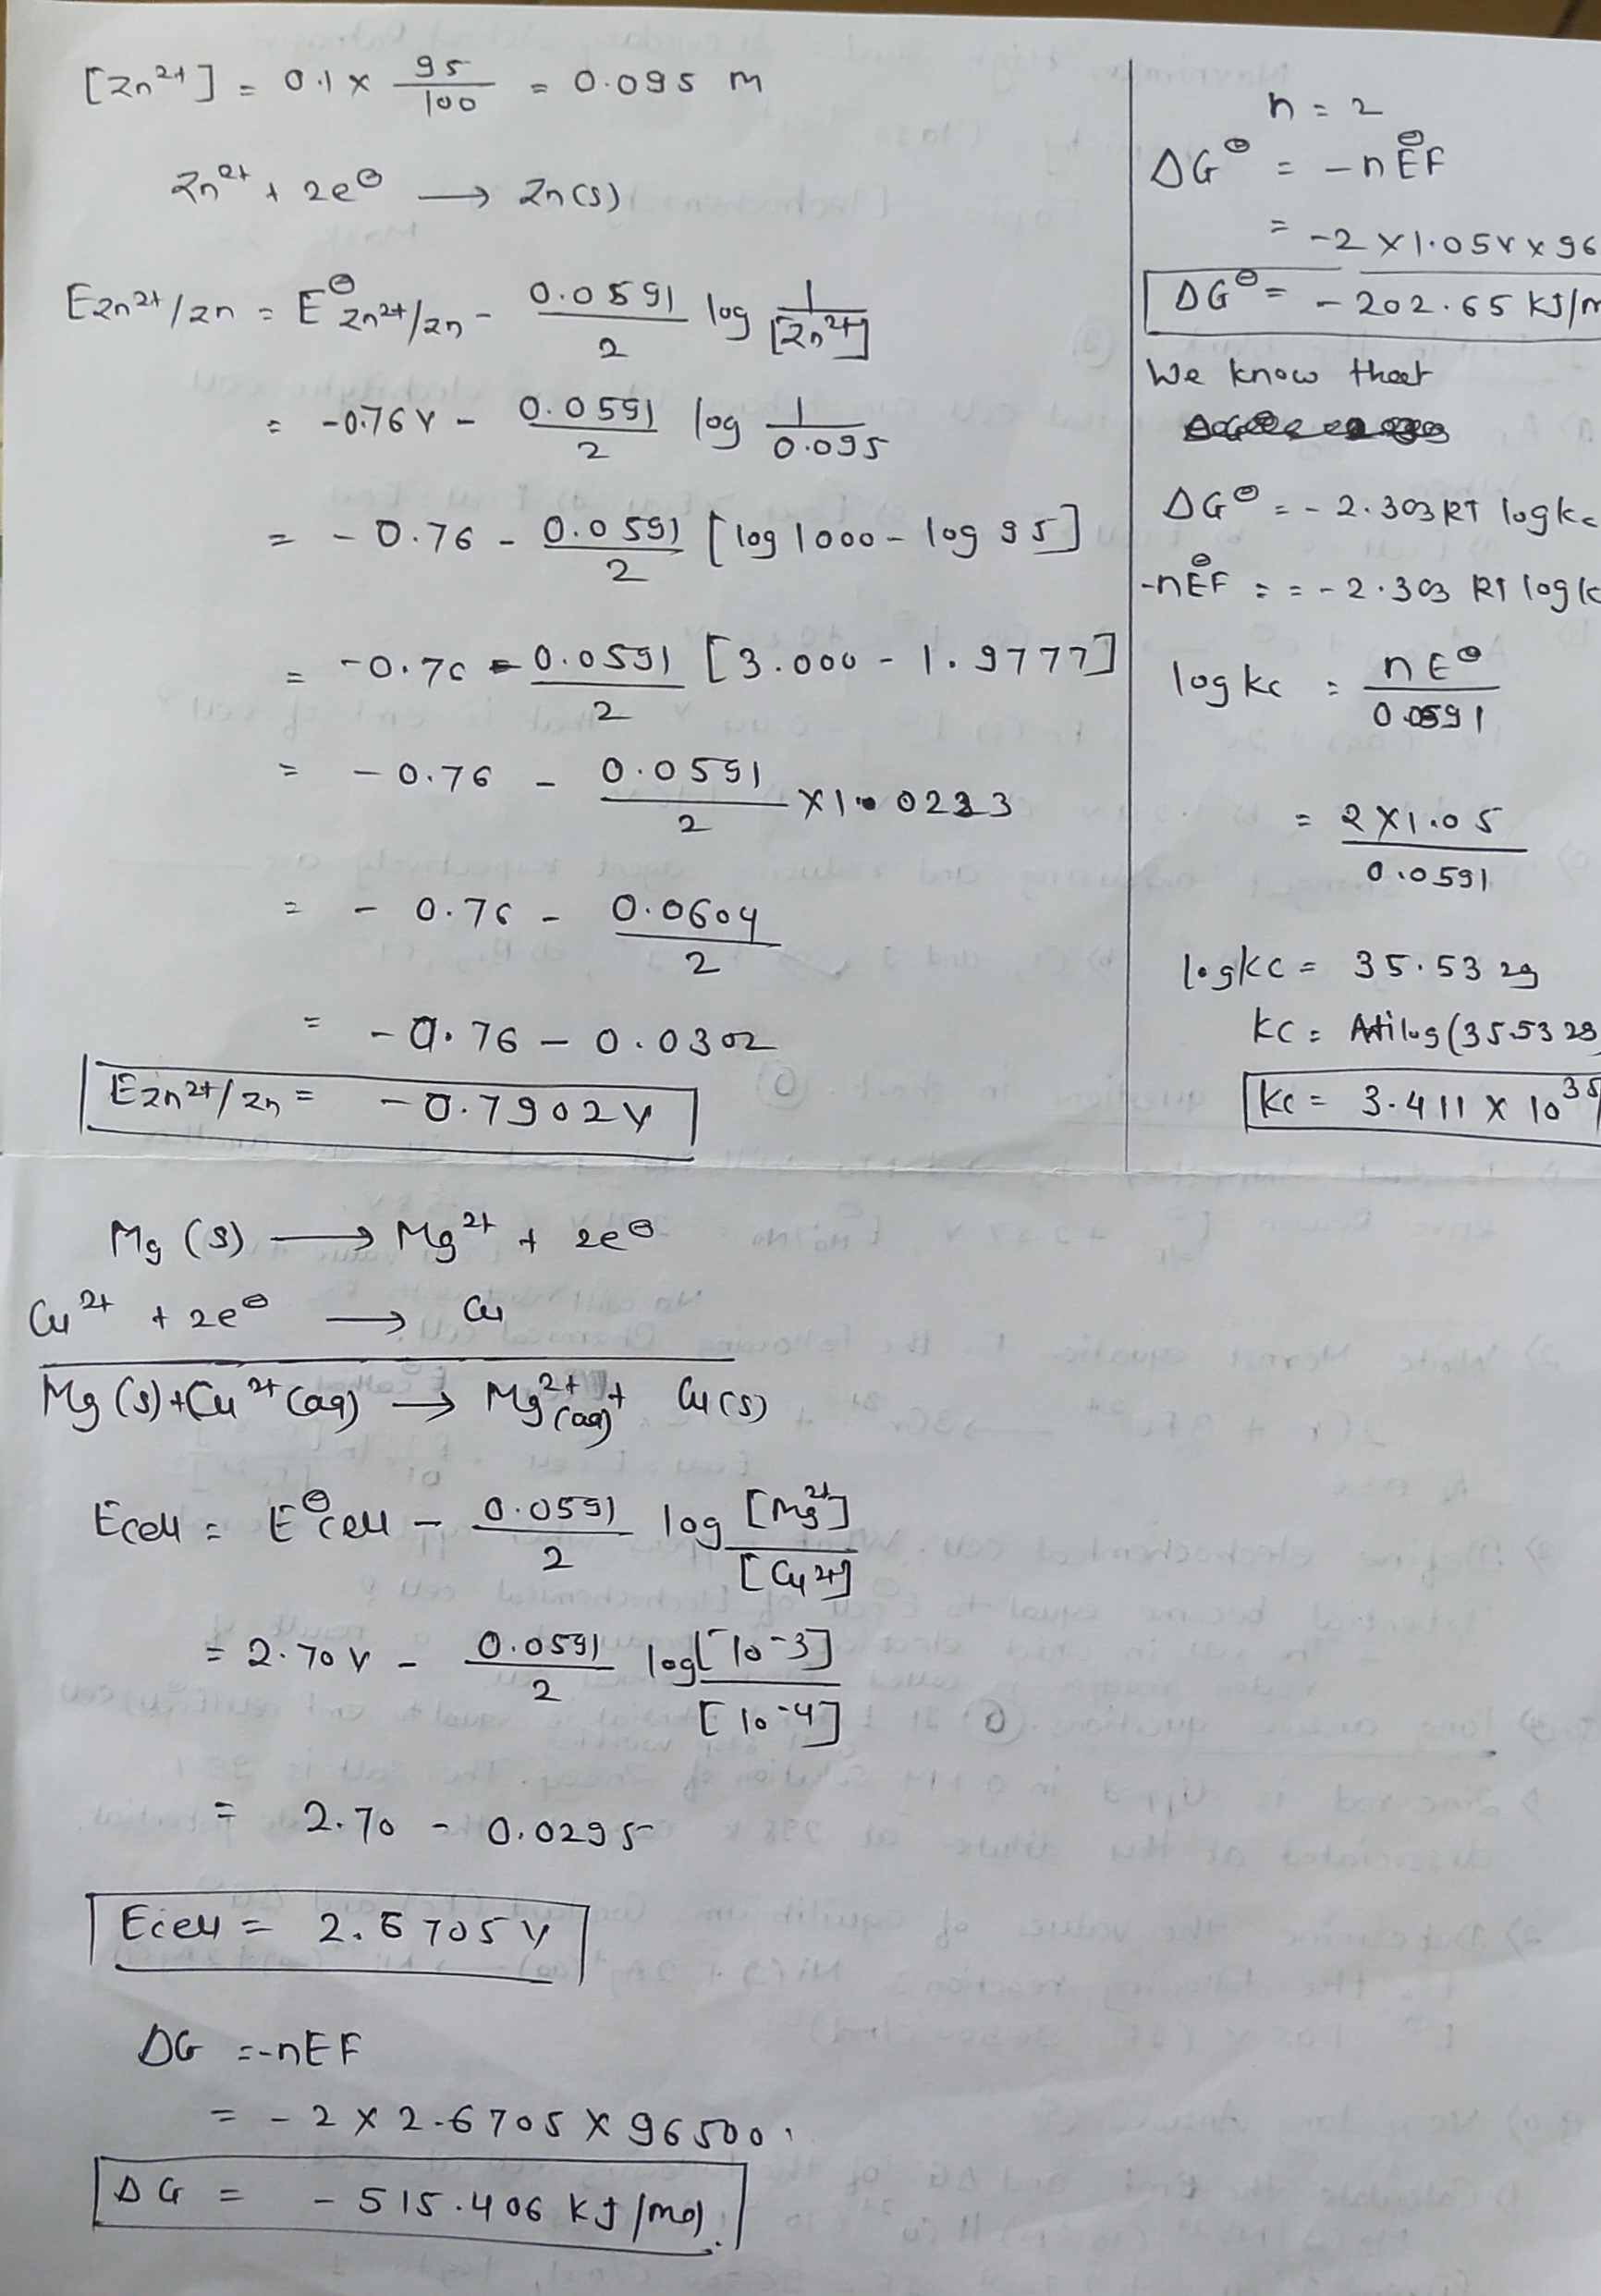 [Zn²⁺] = 0.1 × 95/100 = 0.095 m
Zn²⁺ + 2e⊖ → Zn(s)
E Zn²⁺/Zn = E⊖ Zn²⁺/Zn - 0.0591/2 log 1/[Zn²⁺]
= -0.76V - 0.0591/2 log 1/0.095
= - 0.76 - 0.0591/2 [log 1000 - log 95]
= -0.76 - 0.0591/2 [3.000 - 1.9777]
= - 0.76 - 0.0591/2 × 1.0223
= - 0.76 - 0.0604/2
= - 0.76 - 0.0302
E Zn²⁺/Zn = - 0.7902V
n = 2
ΔG⊖ = -nE⊖F
= -2 × 1.05V × 96
ΔG⊖ = - 202.65 KJ/m
We know that
ΔG⊖ = - 2.303RT logkc
-nE⊖F = = - 2.303 RT logk
log kc = nE⊖/0.0591
= 2×1.05/0.0591
logKC = 35.5329
KC = Atilog(35.5329
Kc = 3.411 × 10³⁵
Mg (s) → Mg²⁺ + 2e⊖
Cu²⁺ + 2e⊖ → Cu
Mg (s) + Cu²⁺ (aq) → Mg²⁺(aq) + Cu(s)
Ecell = E⊖cell - 0.0591/2 log [Mg²⁺]/[Cu²⁺]
= 2.70V - 0.0591/2 log [10⁻³]/[10⁻⁴]
= 2.70 - 0.0295
Ecell = 2.6705V
ΔG = -nEF
= - 2 × 2.6705 × 96500
ΔG = - 515.406 KJ/mol